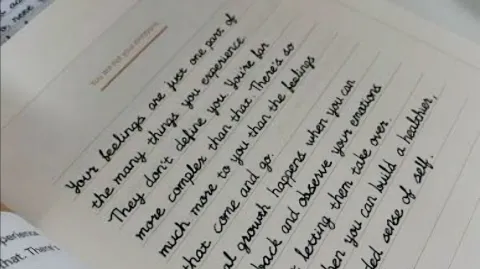 You are not your emotions
Your feelings are just one part of
the many things you experience
They don't define you. You're far
more complex than that. There's so
much more to you than the feelings
that come and go.
al growth happens when you can
back and observe your emotions
letting them take over.
hen you can build a healthier,
ded sense of self.
perience
that. There's